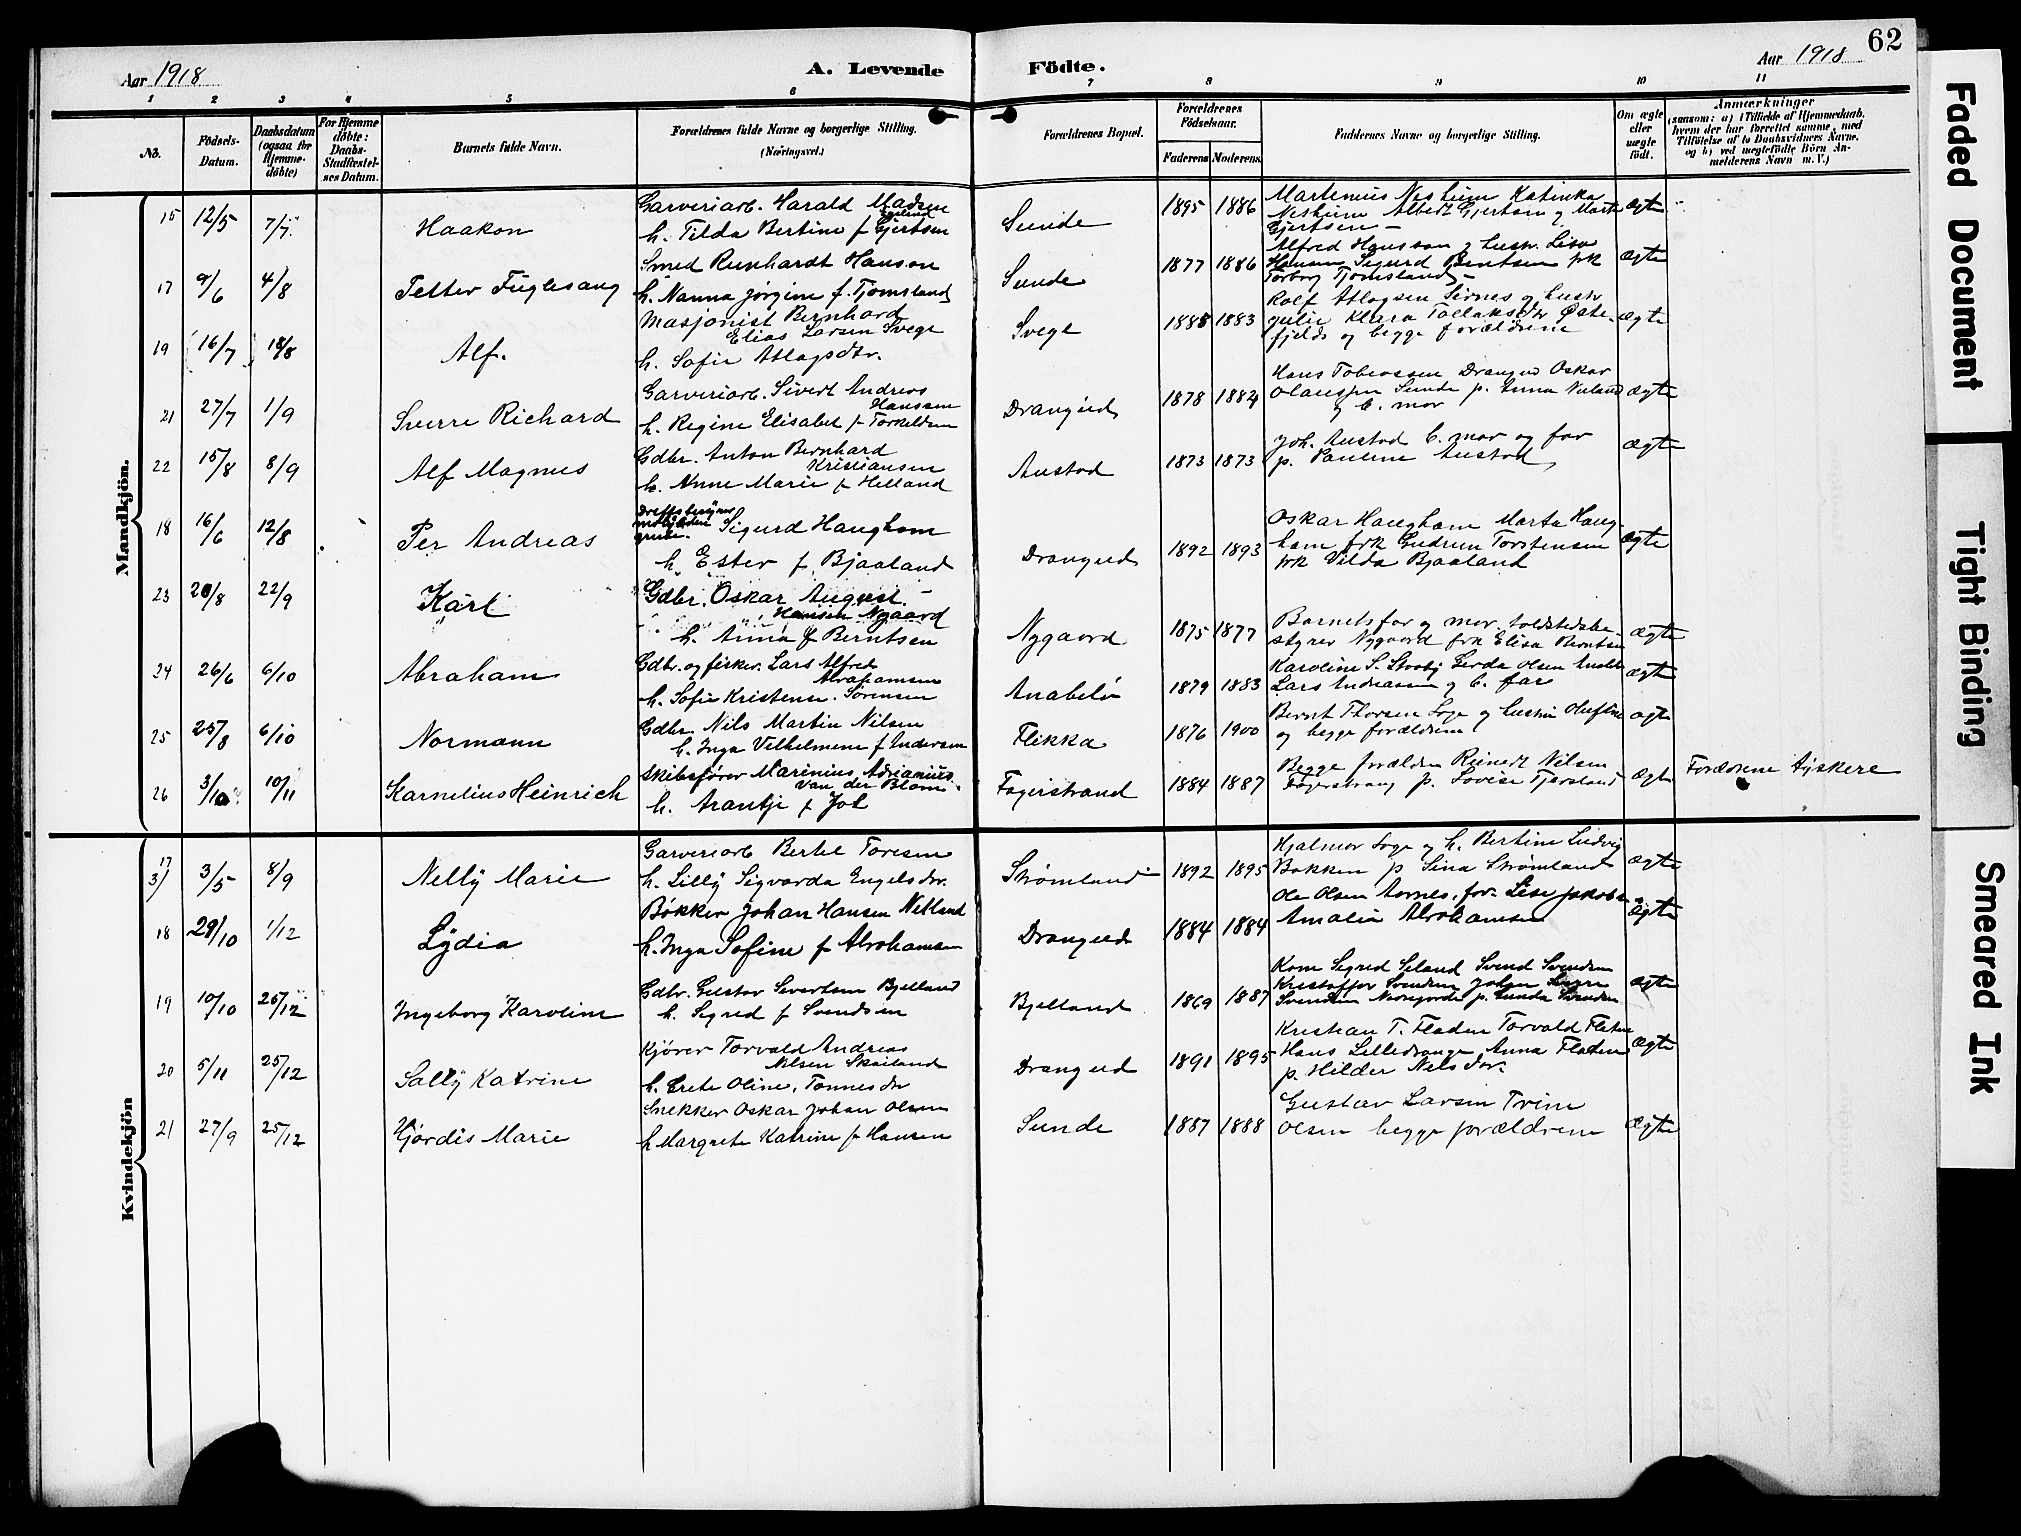 62
Aar 1918
A. Levende
Födte.
Aar 1918
1 2 3 4 5 6 7 8 9 10 11
No.
Födsels-
Datum.
Daabsdatum
(ogsaa for
Hjemme-
döbte)
For Hjemme
döbte:
Daabs-
Stadfæstel-
ses Datum.
Barnets fulde Navn.
Forældrenes fulde Navne og borgerlige Stilling.
(Næringsvei.)
Forældrenes Bopæl.
Forældrenes
Födselsaar.
Faderens Moderens
Faddernes Navne og borgerlige Stilling.
Om ægte
eller
uægte
födt.
Anmærkninger
(saasom: a) i Tilfælde af Hjemmedaab,
hvem der har forrettet samme, med
Tilföielse af to Daabsvidners Navne,
og b) ved uægtefödte Börn An-
melderens Navn m. V.)
Mandkjön.
15 12/5 7/7 Haakon
Garveriarb. Harald Madsen
h. Tilda Bertine f Gjertsen
Sunde 1895 1886
Martenius Nesheim Katinka
Nesheim Albert Gjertsen og Marte
Gjertsen –
ægte
17 9/6 4/8 Petter Fuglesang
Smed Reinhardt Hanson
h. Nanna Jørgine f. Tjomsland
Sunde 1877 1886
Alfred Hansson og hustr. Lise
Hansen Sigurd Bentsen frk
Torborg Tjomsland –
ægte
19 16/7 18/8 Alf.
Masjonist Bernhard
Elias Larsen Svege
h. Sofie Atlagsdtr.
Svege 1888 1883
Rolf Atlagsen Sirnes og hustr
Julie Klara Tollaksdtr Øste-
fjeld og begge forældrene
ægte
21 27/7 1/9 Sverre Richard
Garveriarb. Sivert Andreas
Hanssen
h. Regine Elisabet f Torkeldsen
Drangeid 1878 1884
Hans Tobiassen Drangeid Oskar
Olaussen Sunde p. Anna Netland
og b. mor
ægte
22 15/8 8/9 Alf Magnus
Gdbr. Anton Bernhard
Kristiansen
h. Anne Marie f Helland
Austad 1873 1873
Joh. Austad b. mor og far
p. Pauline Austad
ægte
18 16/6 12/8 Per Andreas
Sigurd Haugham
h. Ester f. Bjaaland
Drangeid 1892 1893
Oskar Haugham Marta Haug-
ham frk Gudrun Torstensen
frk Vilda Bjaaland
ægte
23 20/8 22/9 Kåre
Gdbr. Oskar August
Hansen Nygaard
h. Anna f Berntsen
Nygaard 1875 1877
Barnets far og mor. toldstedsbe-
styrer Nygaard frk Elisa Berntsen
ægte
24 26/6 6/10 Abraham
Gdbr. og fisker. Lars Alfred
Abrahamsen
h. Sofie Kristense. Sørensen
Anabeløi 1879 1883
Karoline S. Gerda Olsen
Lars Andreassen og b. far
ægte
25 25/8 6/10 Normann
Gdbr Nils Martin Nilsen
h. Inga Vilhelmene f Andersen
Flikka 1876 1900
Bernt Thorsen Loge og hustru Olufine
og begge forældrene
ægte
26 3/10 10/11 Karnelius Heinrich
Skibsfører Marinius Adrianius
Van der Blom
h. Arantje f Jol
Fagerstrand 1884 1887
Begge forældre Reinert Nilsen
Fagerstrand p. Lovise Tjorsland
ægte
Forældrene tyskere
Kvindekjön
17 3) 3/5 8/9 Nelly Marie
Garveriarb Bertel Toresen
h. Lilly Sigvarda Engelsdtr.
Strømland 1892 1895
Hjalmar Loge og h. Bertine Ludvig
Bakken p Sina Strømland
ægte
18 29/10 1/12 Lydia
Bøkker Johan Hansen Netland
h. Inga Sofine f Abrahamsen
Drangeid 1884 1884
Ole Olsen Aarnes, for. Lise Jakobs
Amalia Abrahamsen
ægte
19 10/10 26/12 Ingeborg Karoline
Gdbr. Gustav Sivertsen Bjelland
h. Sigred f Svendsen
Bjelland 1869 1887
Kone Sigred Seland Svend Svendsen
Kristoffer Svendsen Johan
Svendsen p. Gunda Svendsen
ægte
20 5/11 25/12 Sally Katrine
Kjører Torvald Andreas
Nilsen Skailand
h. Grete Oline, Tønnesdtr
Drangeid 1891 1895
Kristian T. Fladen Torvald Fladen
Hans Lilledrange Anna Fladen
p. Hilder Nilsdtr.
ægte
21 27/9 25/12 Hjørdis Marie
Snekker Oskar Johan Olsen
h Margrete Katrine f Hansen
Sunde 1887 1888
Gustav Larsen Trine
Olsen begge forældrene
ægte
Faded Document
Tight Binding
Smeared Ink